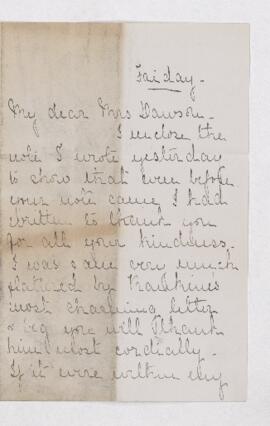 Friday -
My dear Mrs Dawson -
I enclose the
note I wrote yesterday
to show that even before
your note came I had
written to thank you
for all your kindness -
I was very much
flattered by
most charming letter
& beg you will thank
him most cordially -
If it were within my